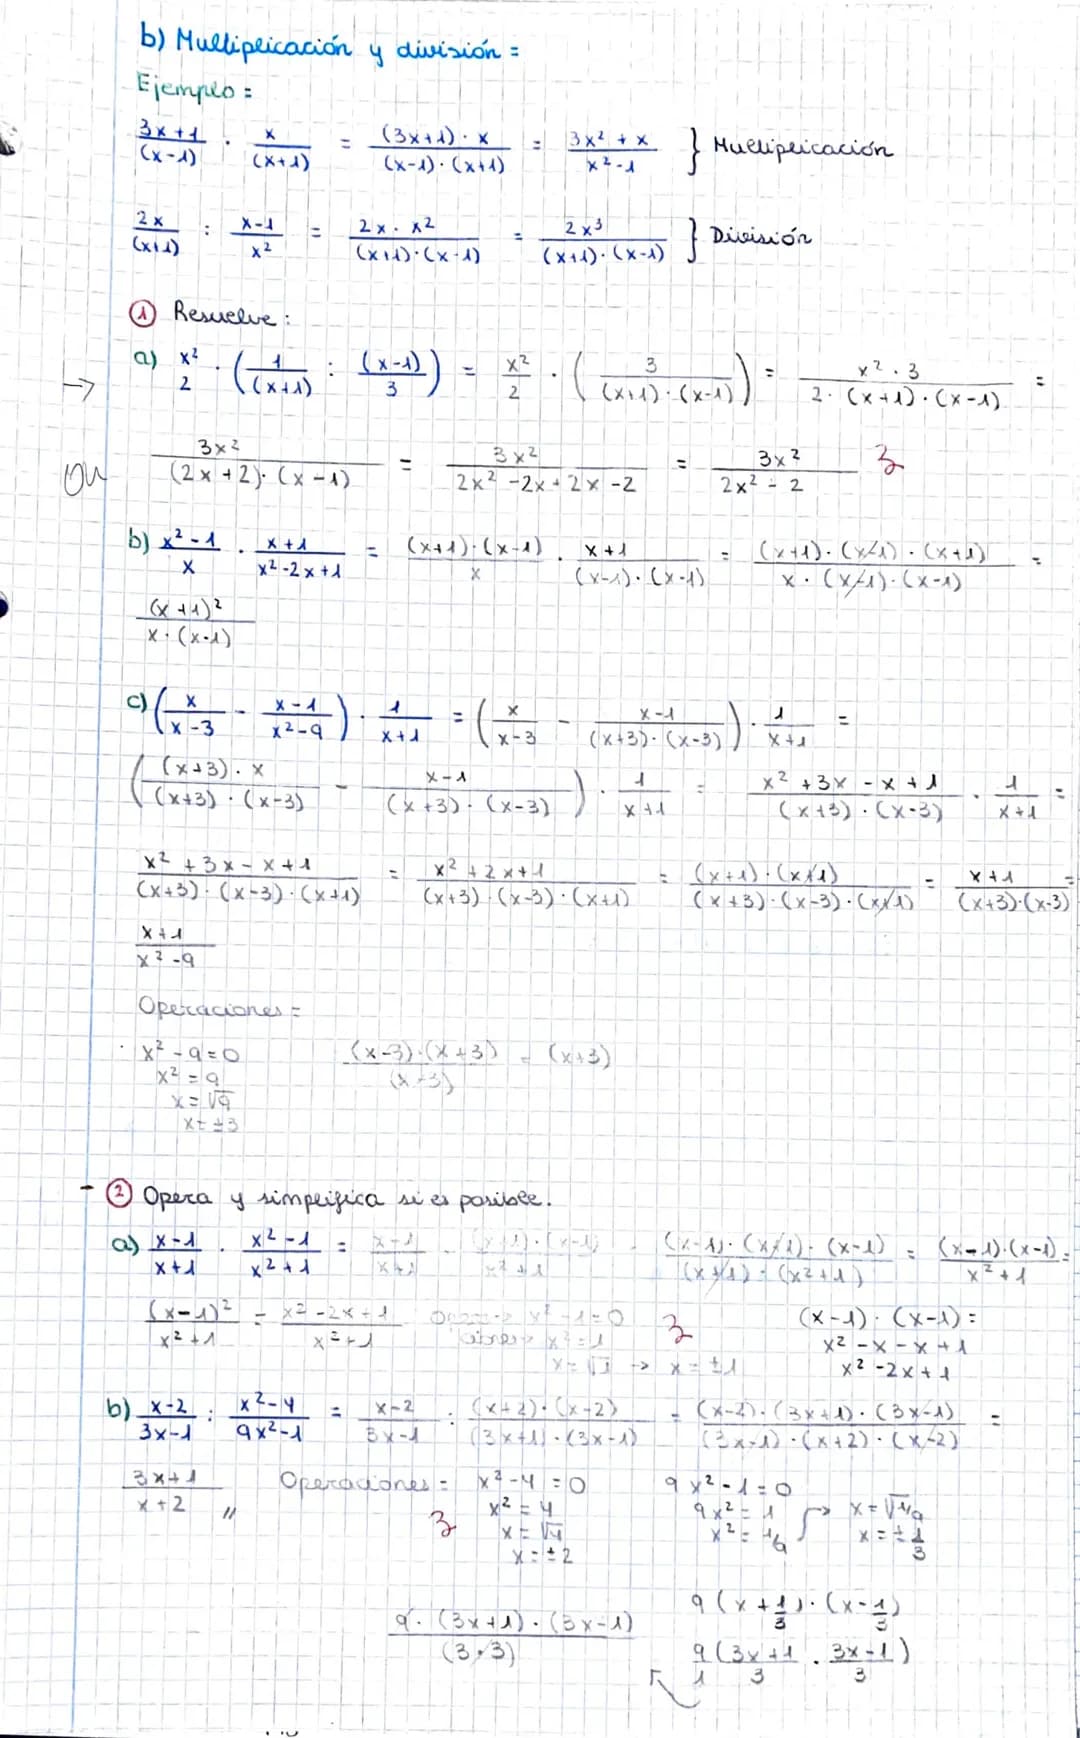 b) Multiplicación y división =
Ejemplo =
(3x+1)/(x-1) · x/(x+1) = ((3x+1)·x)/((x-1)·(x+1)) = (3x²+x)/(x²-1) } Multiplicación
2x/(x+1) : (x-1)/x² = (2x·x²)/((x+1)·(x-1)) = 2x³/((x+1)·(x-1)) } División
① Resuelve:
→ a) x²/2 · (1/(x+1) : (x-1)/3) = x²/2 · (3/((x+1)·(x-1))) = (x²·3)/(2·(x+1)·(x-1)) =
3x²/((2x+2)·(x-1)) = 3x²/(2x²-2x+2x-2) = 3x²/(2x²-2)
b) (x²-1)/x · (x+1)/(x²-2x+1) = ((x+1)·(x-1))/x · (x+1)/((x-1)·(x-1)) = ((x+1)·(x-1)·(x+1))/(x·(x-1)·(x-1)) =
(x+1)²/(x·(x-1))
c) (x/(x-3) - (x-1)/(x²-9)) · 1/(x+1) = (x/(x-3) - (x-1)/((x+3)·(x-3))) · 1/(x+1) =
(((x+3)·x)/((x+3)·(x-3)) - (x-1)/((x+3)·(x-3))) · 1/(x+1) = (x²+3x-x+1)/((x+3)·(x-3)) · 1/(x+1) =
(x²+3x-x+1)/((x+3)·(x-3)·(x+1)) = (x²+2x+1)/((x+3)·(x-3)·(x+1)) = ((x+1)·(x+1))/((x+3)·(x-3)·(x+1)) = (x+1)/((x+3)·(x-3)) =
(x+1)/(x²-9)
Operaciones =
· x²-9=0
x²=9
x=√9
x=±3
((x-3)·(x+3))/(x-3) = (x+3)
- ② Opera y simplifica si es posible.
a) (x-1)/(x+1) · (x²-1)/(x²+1) = (x-1)/(x+1) · ((x+1)·(x-1))/(x²+1) = ((x-1)·(x+1)·(x-1))/((x+1)·(x²+1)) = ((x-1)·(x-1))/(x²+1) =
(x-1)²/(x²+1) = (x²-2x+1)/(x²+1)
x²-1=0
x²=1
x=√1 → x=±1
(x-1)·(x-1)=
x²-x-x+1
x²-2x+1
b) (x-2)/(3x-1) : (x²-4)/(9x²-1) = (x-2)/(3x-1) : ((x+2)·(x-2))/((3x+1)·(3x-1)) = ((x-2)·(3x+1)·(3x-1))/((3x-1)·(x+2)·(x-2)) =
(3x+1)/(x+2) //
Operaciones = x²-4=0
x²=4
x=√4
x=±2
9x²-1=0
9x²=1
x²=1/9 → x=√1/9
x=±1/3
9(x+1/3)·(x-1/3)
9/1((3x+1)/3 · (3x-1)/3)
(9·(3x+1)·(3x-1))/(3·3)